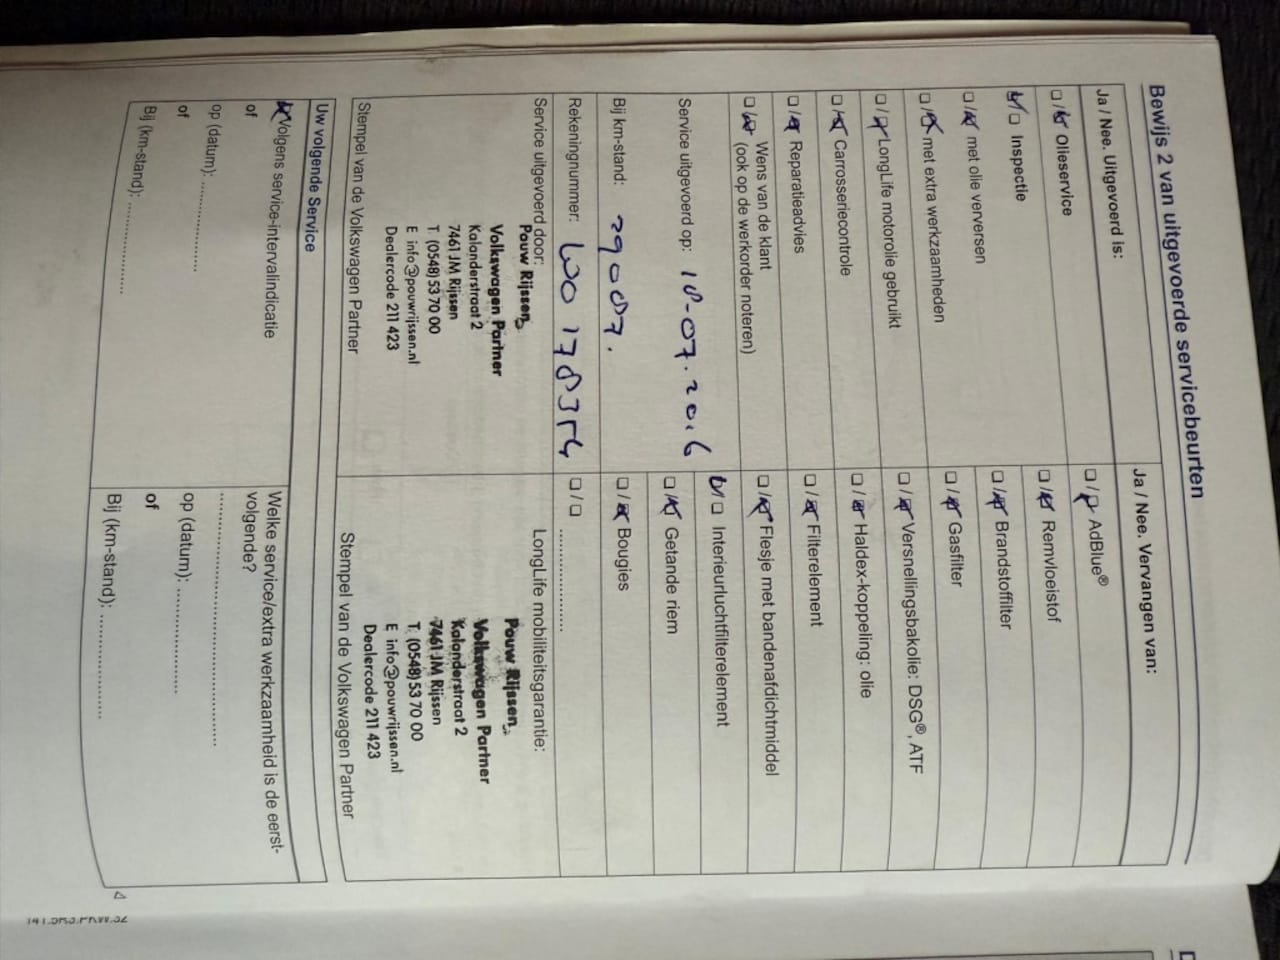 Bewijs 2 van uitgevoerde servicebeurten
Ja / Nee. Uitgevoerd is:
Olieservice
Inspectie
met olie verversen
met extra werkzaamheden
LongLife motorolie gebruikt
Carrosseriecontrole
Reparatieadvies
Wens van de klant
(ook op de werkorder noteren)
Service uitgevoerd op: 18-07.2016
Bij km-stand: 29087.
Rekeningnummer: WO 178354
Service uitgevoerd door:
Pouw Rijssen
Volkswagen Partner
Kalanderstraat 2
7461 JM Rijssen
T (0548) 53 70 00
E info@pouwrijssen.nl
Dealercode 211 423
Stempel van de Volkswagen Partner
Ja / Nee. Vervangen van:
AdBlue®
Remvloeistof
Brandstoffilter
Gasfilter
Versnellingsbakolie: DSG®, ATF
Haldex-koppeling: olie
Filterelement
Flesje met bandenafdichtmiddel
Interieurluchtfilterelement
Getande riem
Bougies
/ ..................
LongLife mobiliteitsgarantie:
Pouw Rijssen
Volkswagen Partner
Kalanderstraat 2
7461 JM Rijssen
T. (0548) 53 70 00
E info@pouwrijssen.nl
Dealercode 211 423
Stempel van de Volkswagen Partner
Uw volgende Service
Volgens service-intervalindicatie
of
op (datum): ..................
of
Bij (km-stand): ..................
Welke service/extra werkzaamheid is de eerst-
volgende?
..................
op (datum): ..................
of
Bij (km-stand): ..................